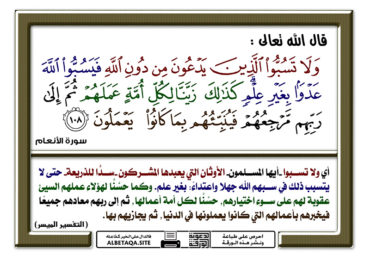 قال الله تعالى :
وَلَا تَسُبُّوا۟ ٱلَّذِينَ يَدْعُونَ مِن دُونِ ٱللَّهِ فَيَسُبُّوا۟ ٱللَّهَ
عَدْوًۢا بِغَيْرِ عِلْمٍ كَذَٰلِكَ زَيَّنَّا لِكُلِّ أُمَّةٍ عَمَلَهُمْ ثُمَّ إِلَىٰ
رَبِّهِم مَّرْجِعُهُمْ فَيُنَبِّئُهُم بِمَا كَانُوا۟ يَعْمَلُونَ ١٠٨
سورة الأنعام
أي ولا تسبوا ـ أيها المسلمون ـ الأوثان التي يعبدها المشركون ـ سدًّا للذريعة ـ حتى لا
يتسبب ذلك في سبهم الله جهلا واعتداءً: بغير علم. وكما حسَّنَّا لهؤلاء عملهم السيئ
عقوبة لهم على سوء اختيارهم، حسَّنَّا لكل أمة أعمالها، ثم إلى ربهم معادهم جميعًا
فيخبرهم بأعمالهم التي كانوا يعملونها في الدنيا، ثم يجازيهم بها.
( التفسير الميسر )
احرص على طباعة
ونشر هذه الورقة
ALBETAQA.SITE